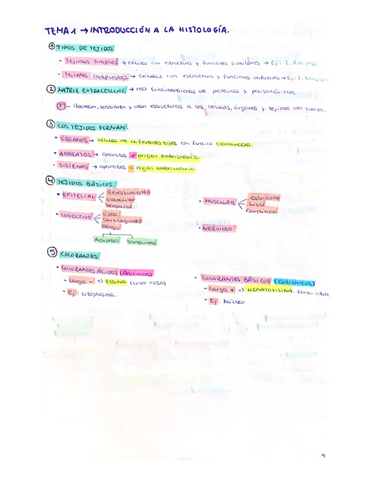 TEMA 1 → INTRODUCCIÓN A LA HISTOLOGÍA.
① TIPOS DE TEJIDOS
- Tejidos simples → células con estructura y funciones similares → Ej: T. Adiposo
- Tejidos compuestos → Células con estructura y funciones diferentes → Ej: T.
② MATRIZ EXTRACELULAR → red tridimensional de proteínas y polisacáridos.
Ⓕ- sostienen y dan estructuras a las células, órganos y tejidos del cuerpo.
③ LOS TEJIDOS FORMAN:
- ÓRGANOS → células de diferentes tipos con función
- APARATOS → aparatos ≠ origen embrionario.
- SISTEMAS → aparatos = origen embrionario.
④ TEJIDOS BÁSICOS:
• EPITELIAL
Revestimiento
Glandular
Sensorial
• CONECTIVO
Óseo
Cartilaginoso
Denso
Adiposo
Sanguíneo
• MUSCULAR
Estriado
Liso
Cardíaco
• NERVIOSO
⑤ COLORANTES
• COLORANTES ÁCIDOS (Aniónicos)
- Carga - => EOSINA (color rosa)
- Ej: citoplasma
- COLORANTES BÁSICOS (Catiónicos)
- Carga + => HEMATOXILINA (color
- Ej: Núcleo